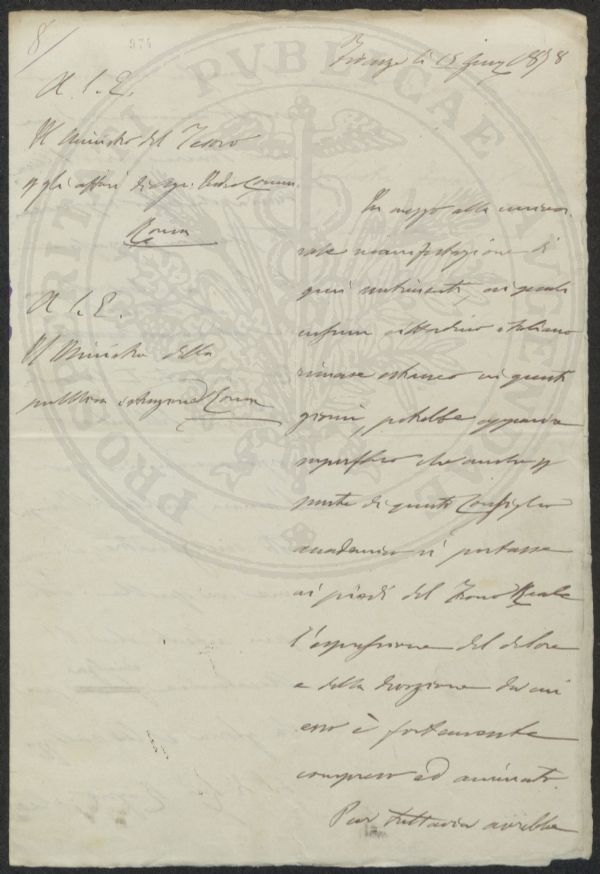 8
974
Firenze li 15 Genn 1878
A S. E.
Il Ministro del Tesoro
p gli affari di Agr. Indus. Comm.
Roma
A S. E.
Il Ministro della
pubblica istruzione Roma
In mezzo alla univer-
sale manifestazione di
quei sentimenti, ai quali
nessun cittadino italiano
rimase estraneo in questi
giorni, potrebbe apparire
superfluo che anche p
parte di questo Consiglio
accademico si portasse
ai piedi del Trono Reale
l'espressione del dolore
e della devozione da cui
esso è fortemente
compreso ed animato.
Pur tuttavia avrebbe
PROSPERITATI PVBLICAE AVGENDAE